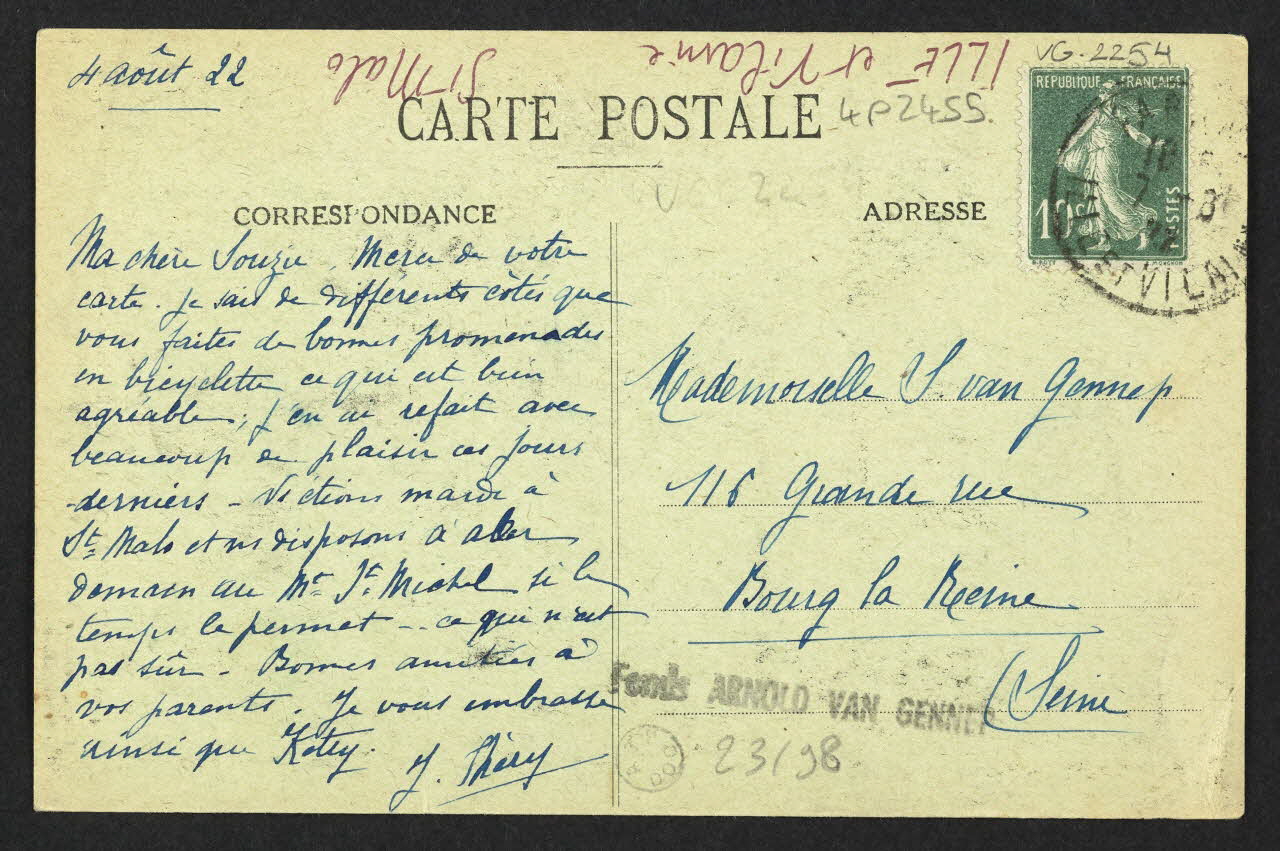 4 août 22
St Malo
ILLE et Vilaine
VG-2254
4P2455.
CARTE POSTALE
REPUBLIQUE FRANÇAISE
10c
POSTES
ET VILAINE
CORRESPONDANCE
Ma chère Souzie, Merci de votre
carte. Je sais de différents côtés que
vous faites de bonnes promenades
en bicyclette ce qui est bien
agréable; j'en ai refait avec
beaucoup de plaisir ces jours
derniers - Ns étions mardi à
St Malo et ns disposons à aller
demain au Mt St Michel si le
temps le permet -- ce qui n'est
pas sûr - Bonnes amitiés à
vos parents. Je vous embrasse
ainsi que Ketty.
ADRESSE
Mademoiselle S. van Gennep
116 Grande rue
Bourg la Reine
(Seine
Fonds ARNOLD VAN GENNEP
23/98.